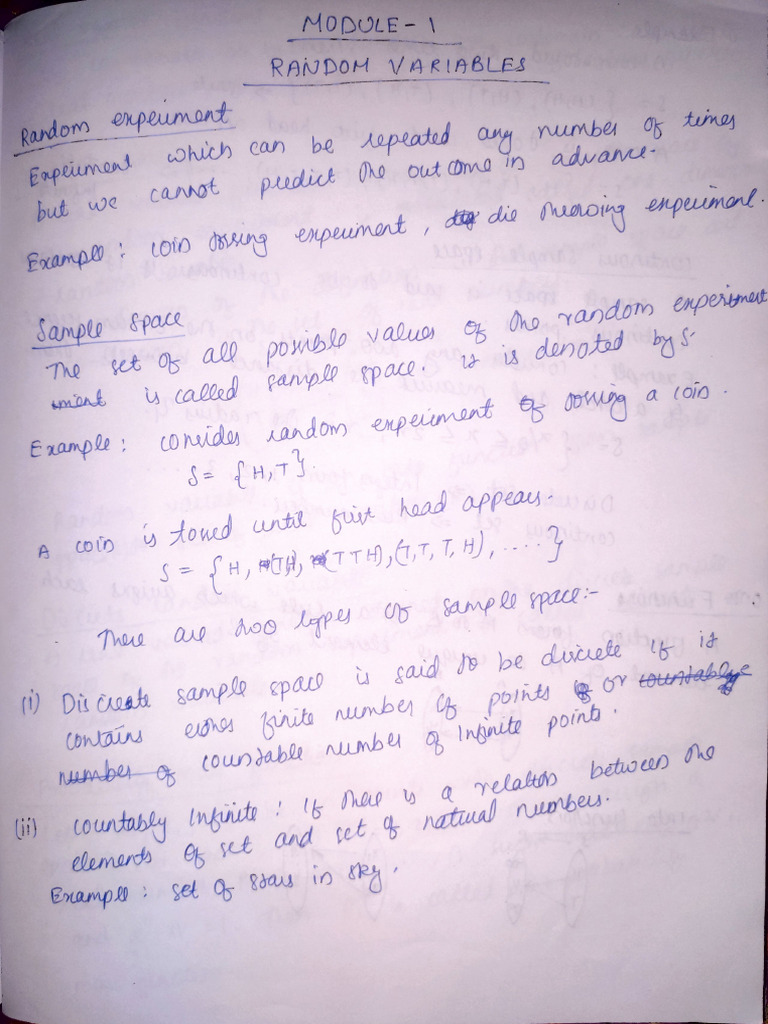 MODULE - 1
RANDOM VARIABLES
Random experiment
Experiment which can be repeated any number of times
but we cannot predict the outcome in advance.
Example : coin tossing experiment, die throwing experiment.
Sample space
The set of all possible values of the random experiment
ment is called sample space. It is denoted by S.
Example : consider random experiment of tossing a coin.
S = {H, T}.
A coin is tossed until first head appears.
S = {H, (T,H), (TTH), (T,T,T,H), .....}
There are two types of sample space:-
(i) Discreate sample space is said to be discrete if it
contains either finite number of points or countable
number of countable number of infinite points.
(ii) countably Infinite : If there is a relation between the
elements of set and set of natural numbers.
Example : set of stars in sky.